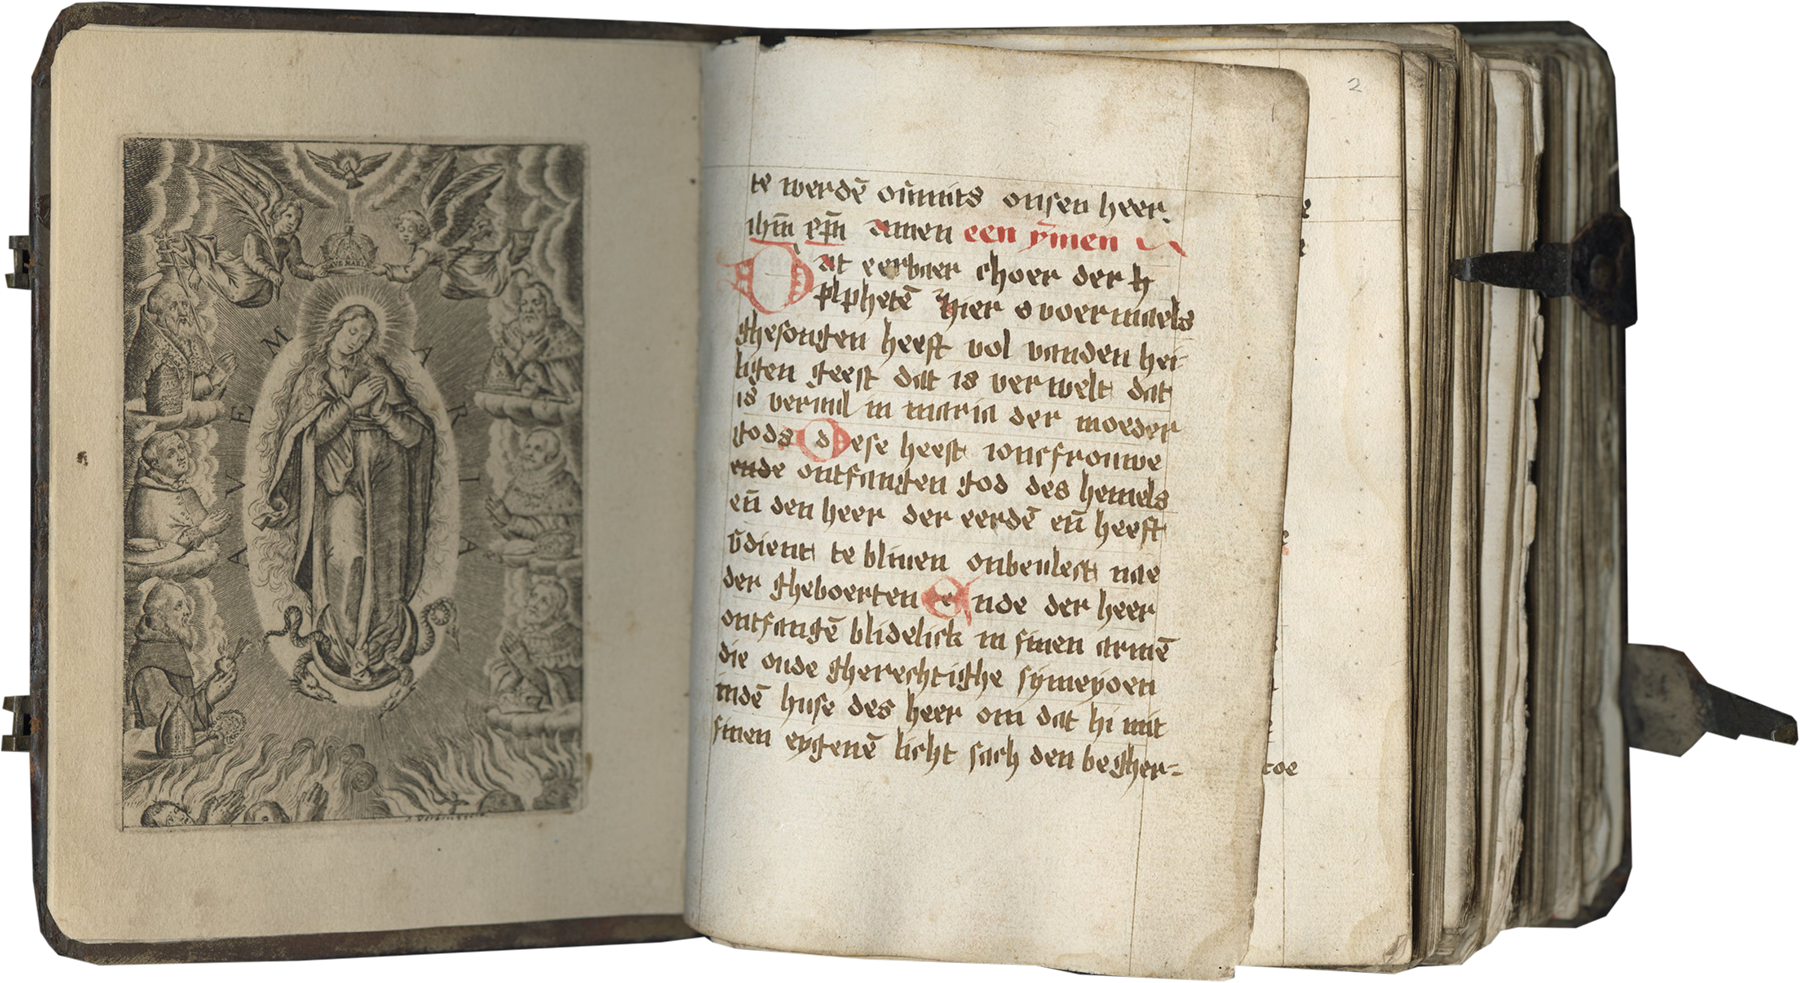 AVE MARIA
AVE MARIA
2
1
te werdē ov̄mits onsen heer
ihm̄ xp̄m amen een ȳmen
Dat eerbaer choer der h
plpheten hier o voermaels
ghesongen heeft vol vanden hei
ligen geest dat is verwelt dat
is veruul in maria der moeder
gods dese heeft ioncfrouwe
ende ontfangen god des hemels
eñ den heer der eerdē eñ heeft
v̄dient te bliuen onbeulect nae
der gheboerten ende der heer
ontfangē blidelick in sinen armē
die oude gherechtighe symeyoen
indē huse des heer om dat hi mit
sinen eygenē licht sach den begher=
toe